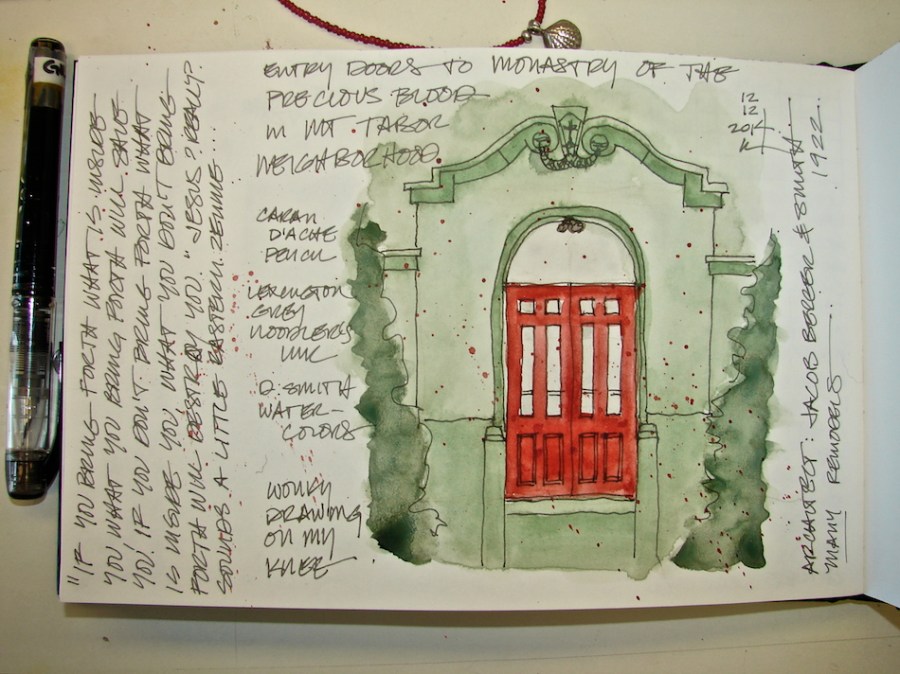 ENTRY DOORS TO MONASTRY OF THE
PRECIOUS BLOOD
IN MT TABOR
NEIGHBORHOOD
12
12
2014
CARAN
D'ACHE
PENCIL
LEXINGTON
GREY
NOODLER'S
INK
D. SMITH
WATER-
COLORS
WONKY
DRAWING
ON MY
KNEE
"IF YOU BRING FORTH WHAT IS INSIDE
YOU WHAT YOU BRING FORTH WILL SAVE
YOU. IF YOU DON'T BRING FORTH WHAT
IS INSIDE YOU WHAT YOU DON'T BRING
FORTH WILL DESTRAY YOU." JESUS? REALLY?
SOUNDS A LITTLE EASTERN. ZENME...
ARCHITECT: JACOB BERGER & SMITH
1922.
MANY REMODELS